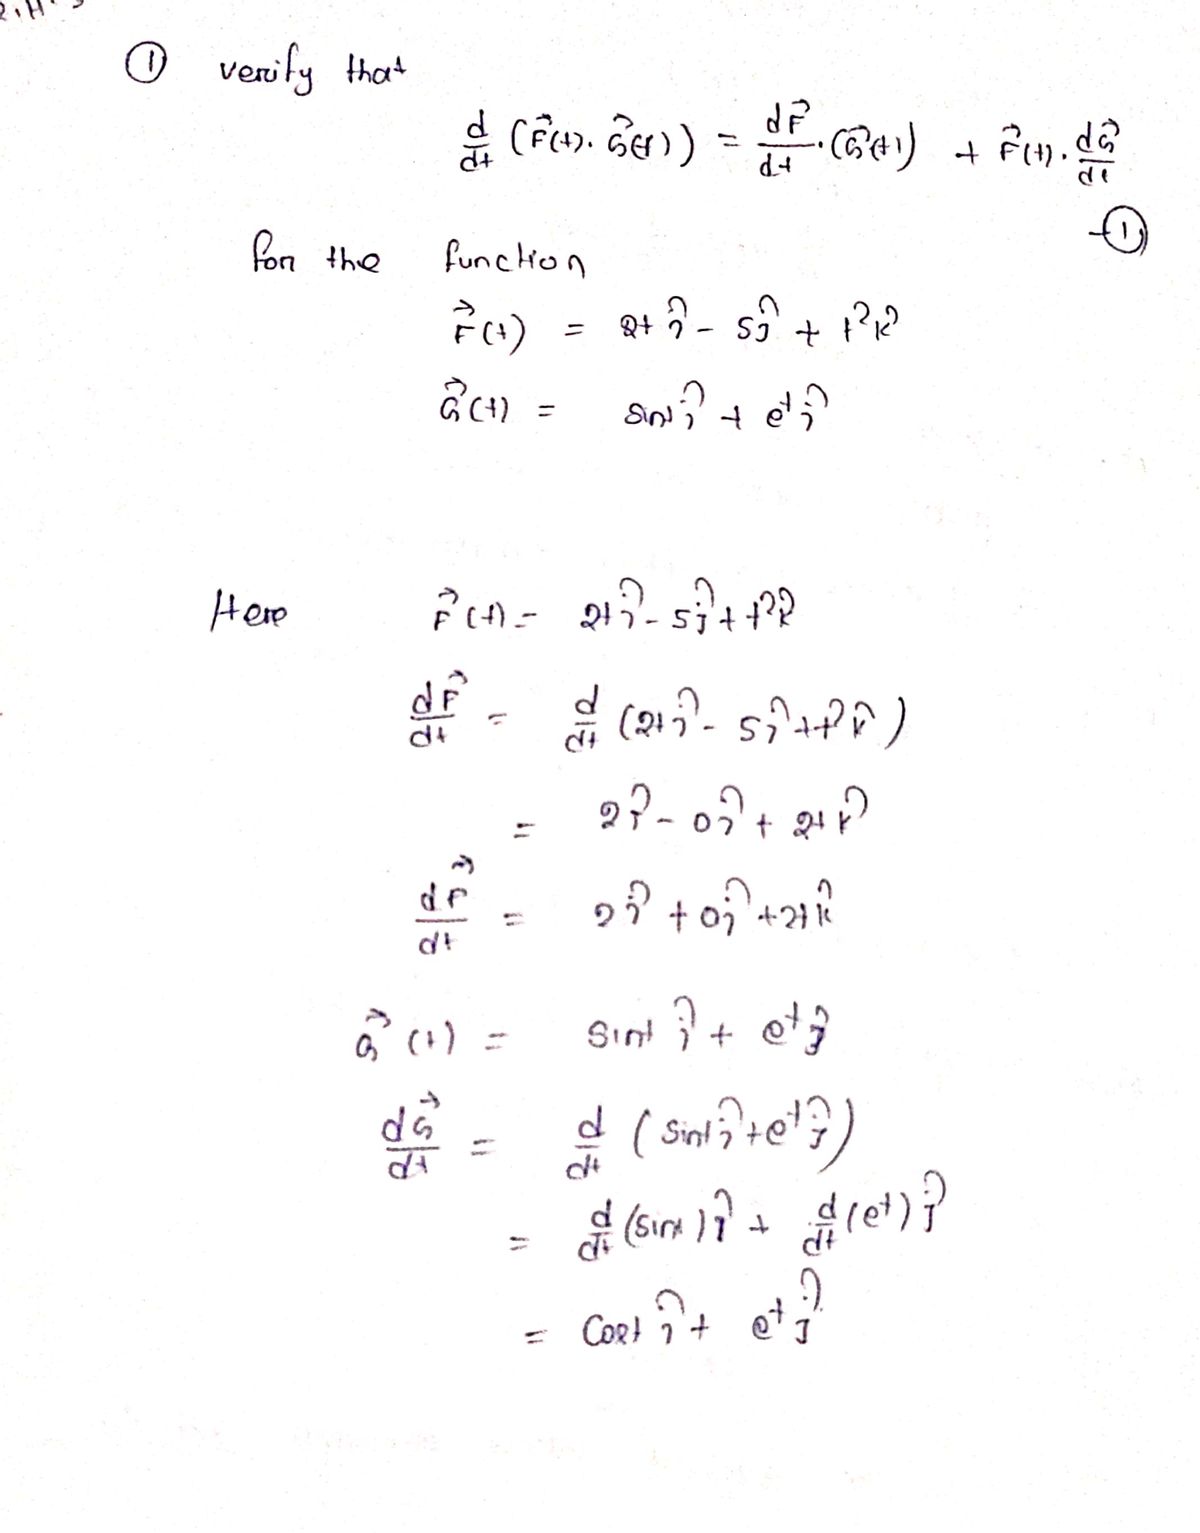 ① verify that
d/dt (F⃗(t). G⃗(t)) = dF⃗/dt .(G⃗(t)) + F⃗(t). dG⃗/dt
-①
for the function
F⃗(t) = 2t î - 5ĵ + t²k̂
G⃗(t) = sint î + eᵗ ĵ
Here F⃗(t) = 2t î - 5ĵ + t²k̂
dF⃗/dt = d/dt (2t î - 5ĵ + t²k̂)
= 2î - 0ĵ + 2t k̂
dF⃗/dt = 2î + 0ĵ + 2t k̂
G⃗(t) = sint î + eᵗ ĵ
dG⃗/dt = d/dt (sint î + eᵗ ĵ)
= d/dt (sint) î + d/dt (eᵗ) ĵ
= Cost î + eᵗ ĵ